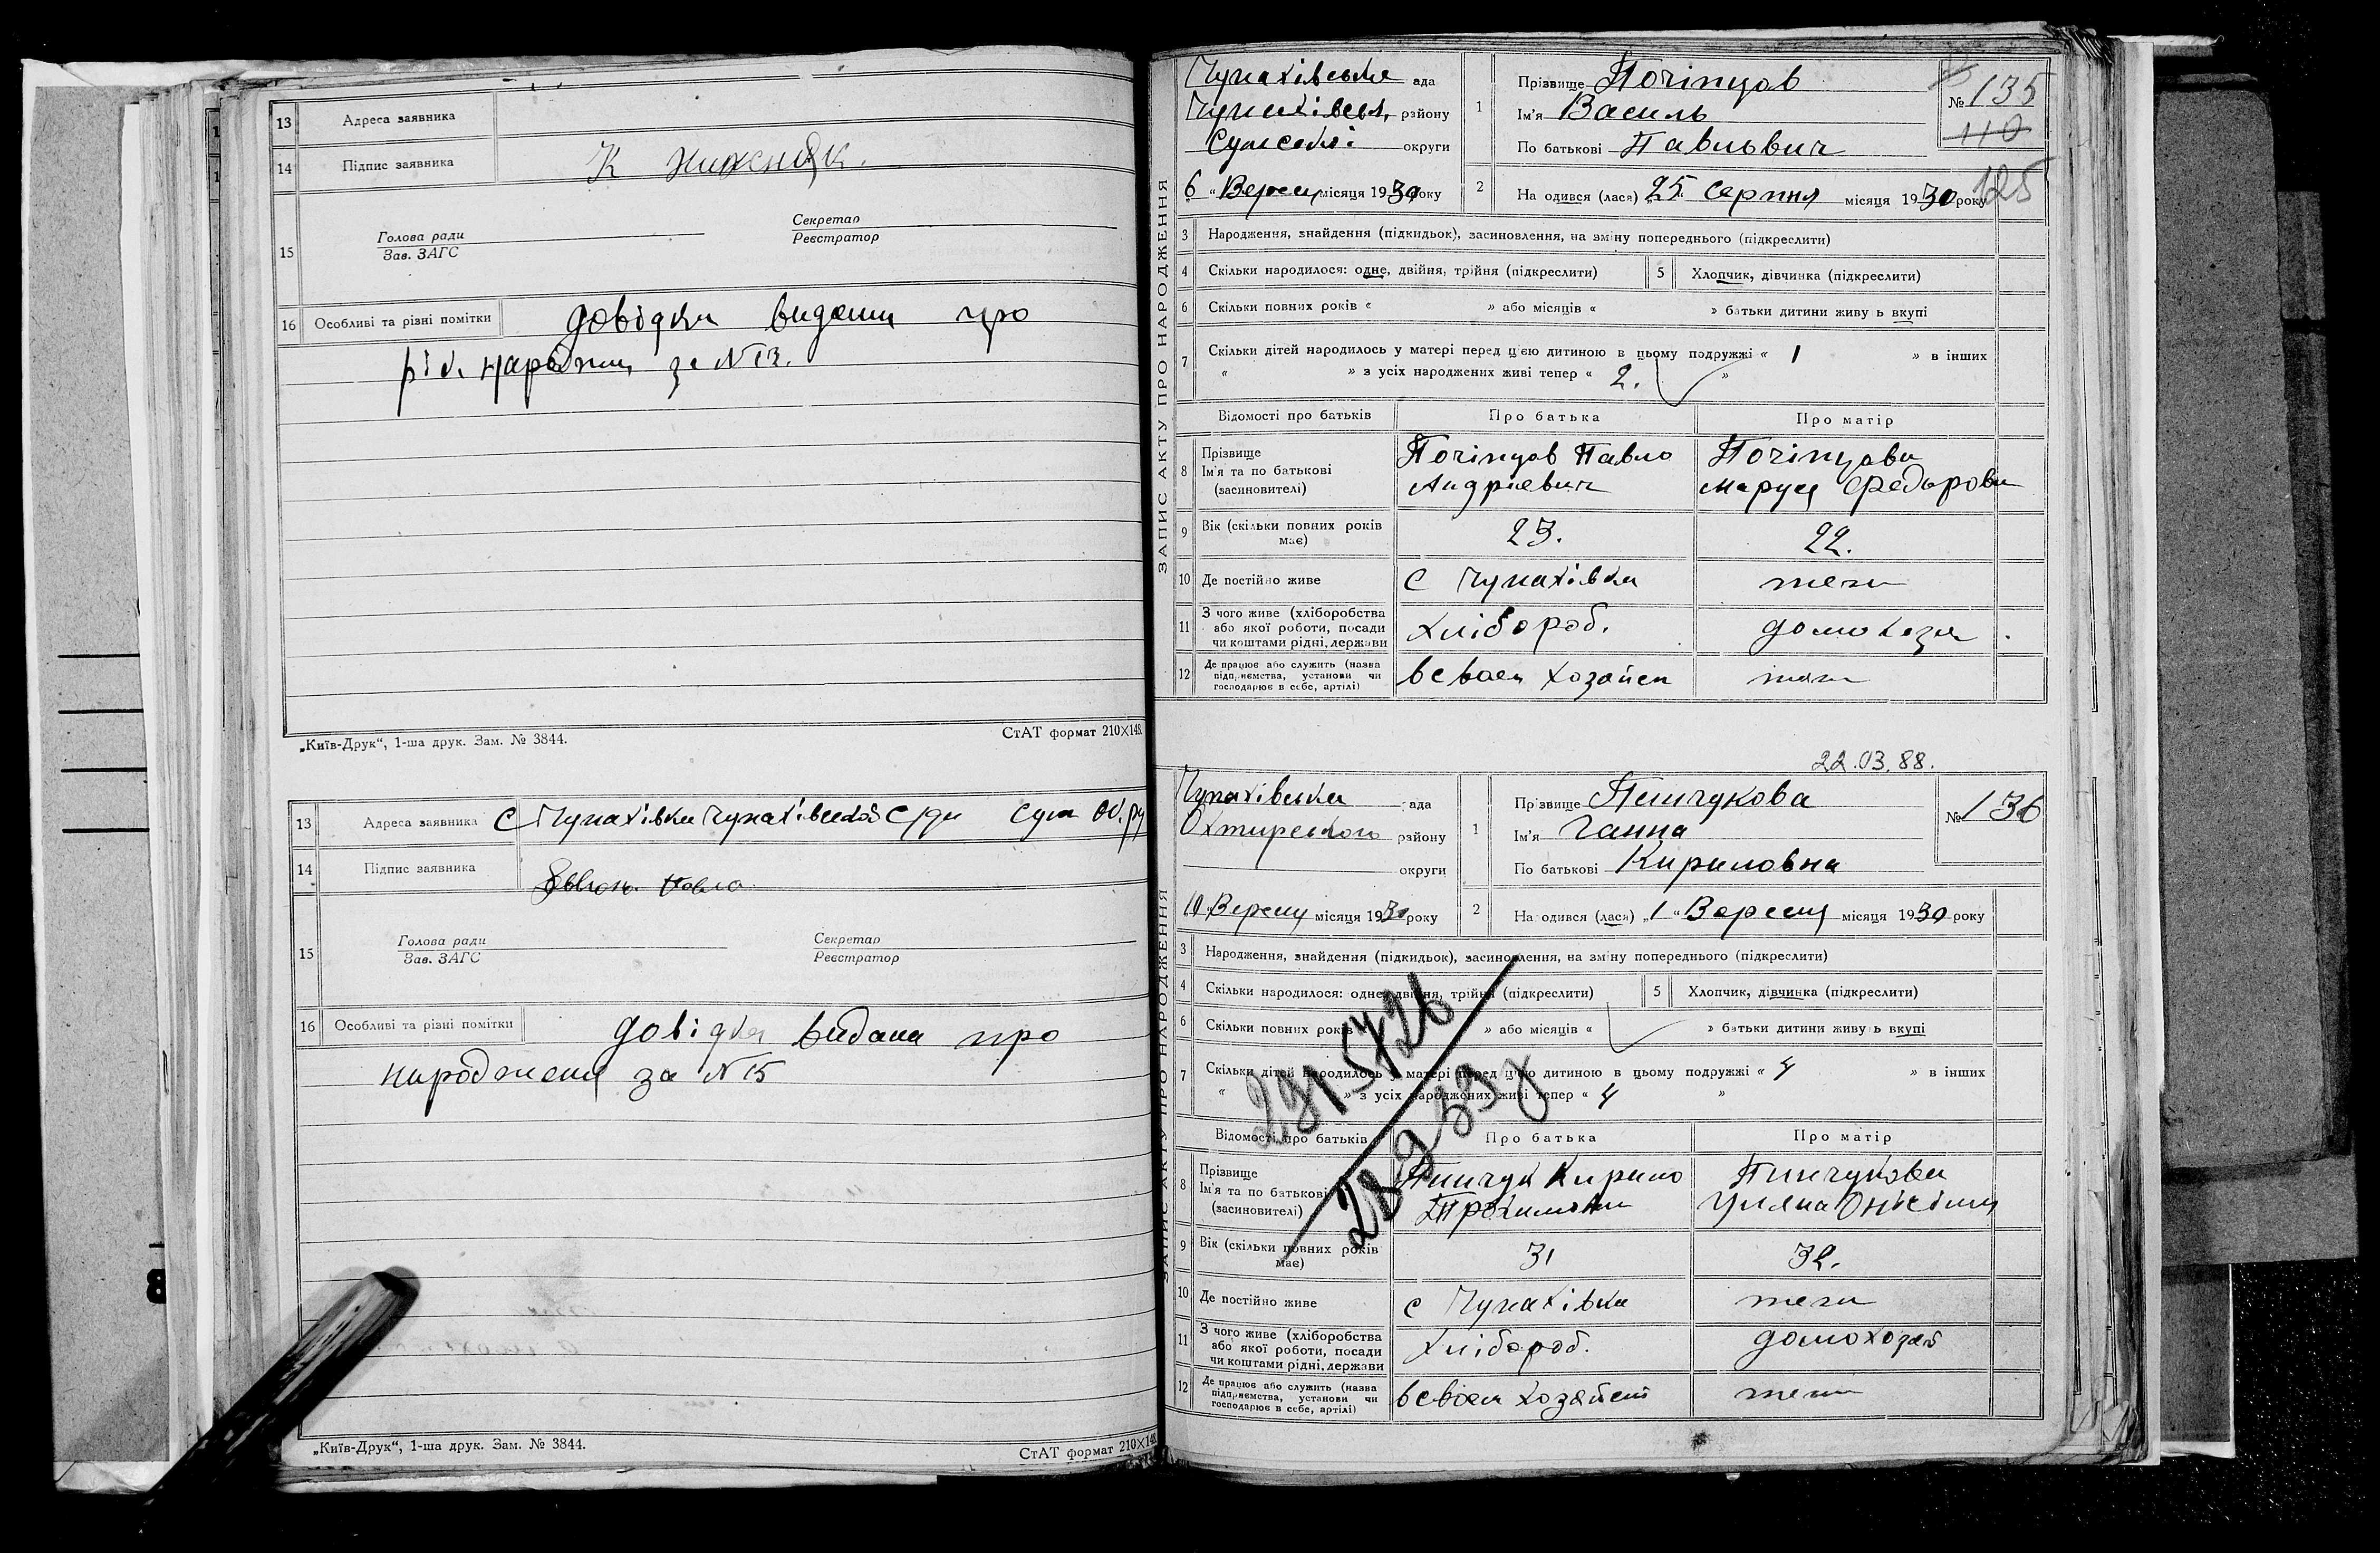 13 Адреса заявника
14 Підпис заявника К Нижник.
15 Голова ради Секретар
Зав. ЗАГС Реєстратор
16 Особливі та різні помітки довідка видана про
за N 13.
„Київ-Друк“, 1-ша друк. Зам. № 3844. СтАТ формат 210×148.
13 Адреса заявника с Чупахівка Чупахівської с/ради Сум Ок.
14 Підпис заявника Павло
15 Голова ради Секретар
Зав. ЗАГС Реєстратор
16 Особливі та різні помітки довідка видана про
народження за N 15
„Київ-Друк“, 1-ша друк. Зам. № 3844. СтАТ формат 210×148
ЗАПИС АКТУ ПРО НАРОДЖЕННЯ
Чупахівська ада 1 Прізвище Почіпцов № 135
Чупахівськ. району Ім'я Василь 110
Сумської округи По батькові Павлович
6 „ Вересн місяця 1930 року 2 На одився (лася) „25 серпня місяця 1930 року 125
3 Народження, знайдення (підкидьок), засиновлення, на зміну попереднього (підкреслити)
4 Скільки народилося: одне, двійня, трійня (підкреслити) 5 Хлопчик, дівчинка (підкреслити)
6 Скільки повних років « » або місяців « » батьки дитини живу ь вкупі
7 Скільки дітей народилось у матері перед цією дитиною в цьому подружжі « 1 » в інших
« » з усіх народжених живі тепер « 2. »
Відомості про батьків Про батька Про матір
8 Прізвище Ім'я та по батькові (засиновителі) Почіпцов Павло Почіпцова
Андрієвич Маруся Федорова
9 Вік (скільки повних років має) 23. 22.
10 Де постійно живе с Чупахівка тежи
11 З чого живе (хліборобства або якої роботи, посади чи коштами рідні, держави Хлібороб. домохозя
12 Де працює або служить (назва підприємства, установи чи господарює в себе, артілі) в своем хозяйст тежи
22.03.88.
ЗАПИС АКТУ ПРО НАРОДЖЕННЯ
Чупахівська ада 1 Прізвище Пинчукова № 136
Охтирського району Ім'я Ганна
округи По батькові Кириловна
10 „ Вересн місяця 1930 року 2 На одився (лася) „1“ Вересня місяця 1930 року
3 Народження, знайдення (підкидьок), засиновлення, на зміну попереднього (підкреслити)
4 Скільки народилося: одне, двійня, трійня (підкреслити) 5 Хлопчик, дівчинка (підкреслити)
6 Скільки повних років » або місяців « » батьки дитини живу ь вкупі
7 Скільки дітей народилось у матері перед цією дитиною в цьому подружжі « 4 » в інших
« » з усіх народжених живі тепер « 4 »
Відомості про батьків Про батька Про матір
8 Прізвище Ім'я та по батькові (засиновителі) Пинчук Кирило Пинчукова
Уляна Онісімів
9 Вік (скільки повних років має) 31 32.
10 Де постійно живе с Чупахівка тежи
11 З чого живе (хліборобства або якої роботи, посади чи коштами рідні, держави Хлібороб. домохозяй
12 Де працює або служить (назва підприємства, установи чи господарює в себе, артілі) в своем хозяйст тежи